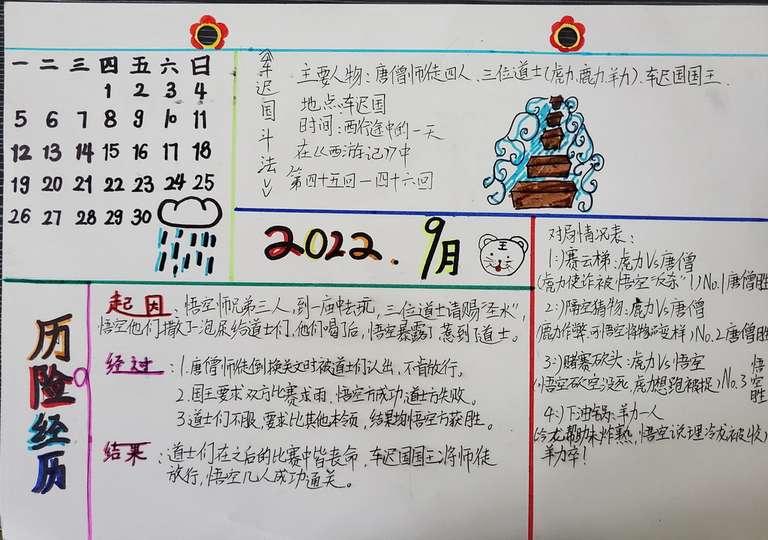 一 二 三 四 五 六 日
1 2 3 4
5 6 7 8 9 10 11
12 13 14 15 16 17 18
19 20 21 22 23 24 25
26 27 28 29 30
《车迟国斗法》
主要人物:唐僧师徒四人、三位道士(虎力.鹿力.羊力)、车迟国国王.
地点:车迟国
时间:西行途中的一天
在《西游记》中
第四十五回一四十六回
2022.9月
王
历险经历
起因:悟空师兄弟三人,到一庙中去玩,三位道士请赐“圣水”,
悟空他们撒了泡尿给道士们,他们喝了后,悟空暴露了惹到了道士。
经过:1.唐僧师徒倒换关文时被道士们认出,不肯放行。
2.国王要求双方比赛求雨,悟空方成功,道士方失败。
3.道士们不服,要求比其他本领,结果均悟空方获胜。
结果:道士们在之后的比赛中皆丧命,车迟国国王将师徒
放行,悟空几人成功通关。
对局情况表:
1:)赛云梯:虎力Vs唐僧
(虎力使诈被悟空“ 杀”)No.1唐僧胜
2:)隔空猜物:鹿力Vs唐僧
(鹿力作弊,可悟空将物品变样)No.2唐僧胜
3:)赌赛砍头:虎力Vs悟空
(悟空砍空没死,虎力想跑被捉)No.3悟空胜
4:)下油锅:羊力一人
(冷龙帮助未炸熟,悟空说理冷龙被收)
羊力卒!